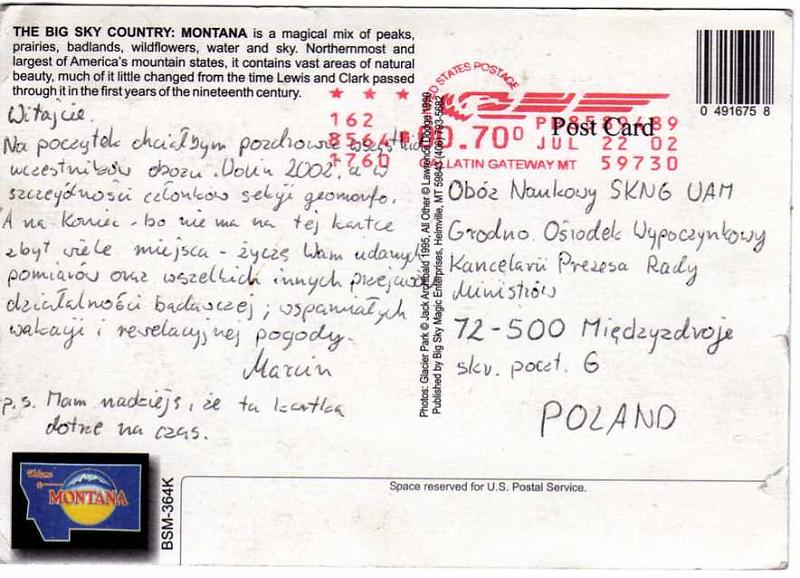 THE BIG SKY COUNTRY: MONTANA is a magical mix of peaks,
prairies, badlands, wildflowers, water and sky. Northernmost and
largest of America's mountain states, it contains vast areas of natural
beauty, much of it little changed from the time Lewis and Clark passed
through it in the first years of the nineteenth century.
Witajcie.
Na początek chciałbym pozdrowić wszystkich
uczestników obozu Wolin 2002, a w
szczególności członków sekcji geomorfo.
A na koniec - bo nie ma na tej kartce
zbyt wiele miejsca - życzę Wam udanych
pomiarów oraz wszelkich innych przejawów
działalności badawczej, wspaniałych
wakacji i rewelacyjnej pogody.
Marcin
p.s. Mam nadzieję, że ta kartka
dotrze na czas.
Welcome
MONTANA
BSM-364K
Photos: Glacier Park © Jack Archibald 1995, All Other © Lawrence Dodge 1990
Published by Big Sky Magic Enterprises, Helmville, MT 59843 (406) 793-5682
UNITED STATES POSTAGE
162
1760
0.700
JUL 22 02
GALLATIN GATEWAY MT 59730
0 491675 8
Post Card
Obóz Naukowy SKNG UAM
Grodno. Ośrodek Wypoczynkowy
Kancelarii Prezesa Rady
Ministrów
72-500 Międzyzdroje
skr. poczt. 6
POLAND
Space reserved for U.S. Postal Service.